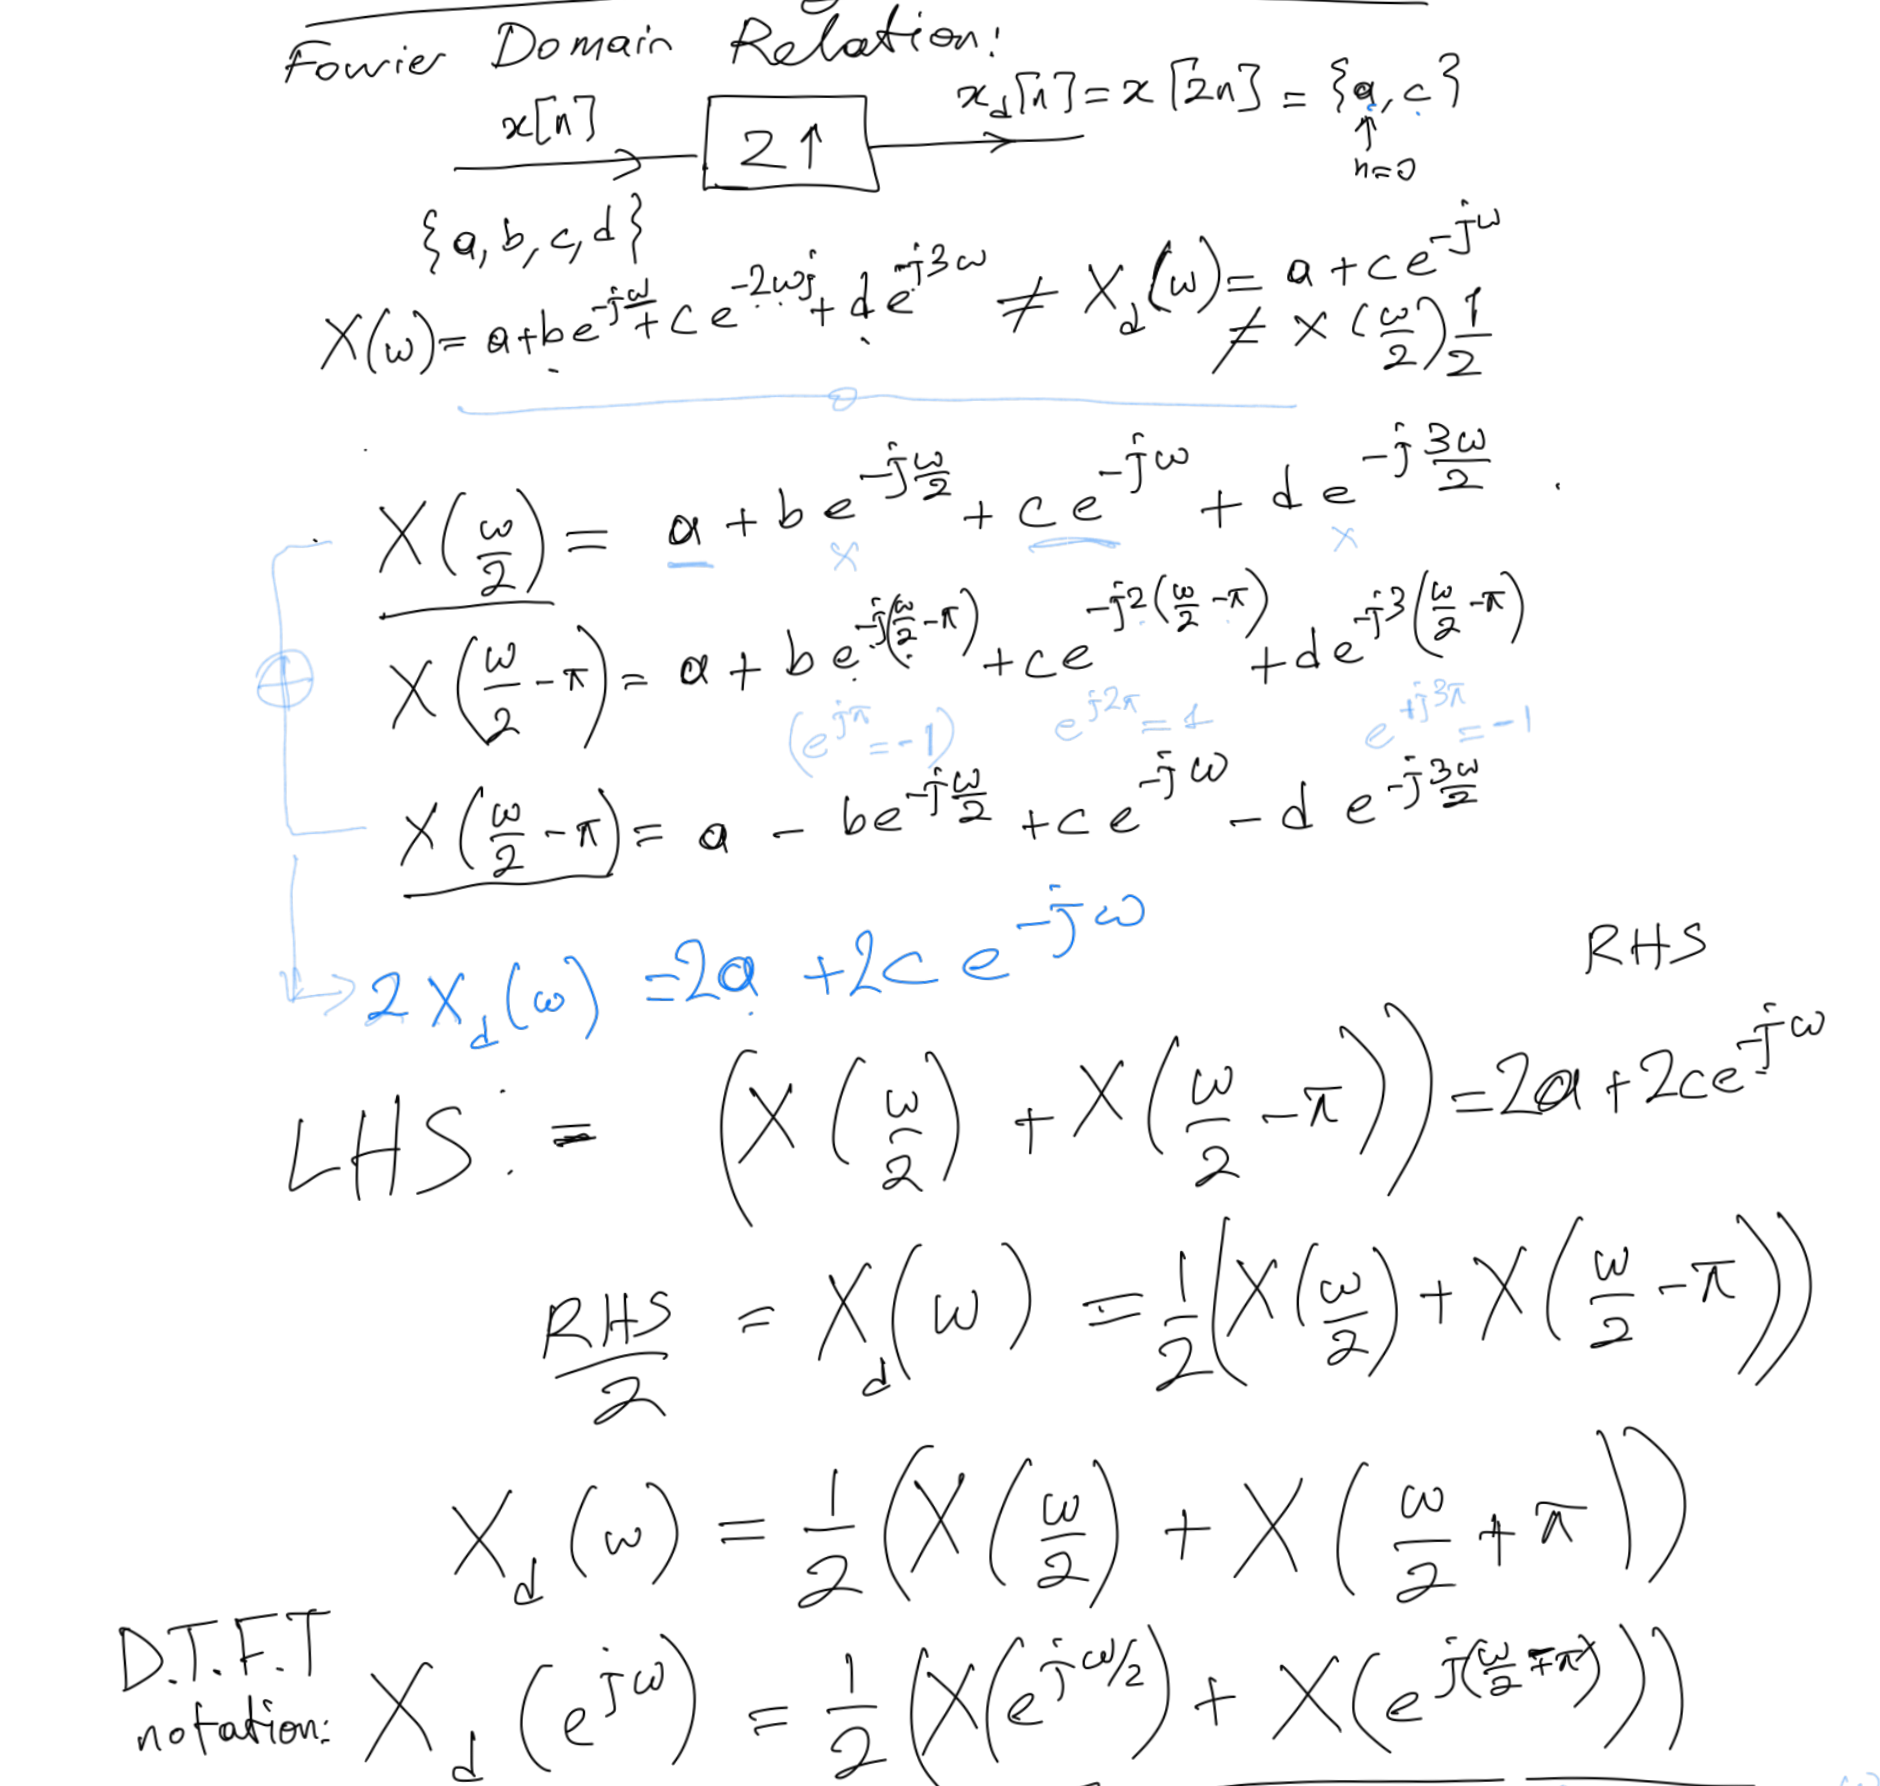 Fourier Domain Relation:
x[n] 2↑ x_d[n] = x[2n] = {a, c}
↑
n=0
{a, b, c, d}
X(ω) = a + be^{-jω} + ce^{-2ωj} + de^{-j3ω} ≠ X_d(ω) = a + ce^{-jω}
≠ X(ω/2) 1/2
X(ω/2) = a + be^{-jω/2} + ce^{-jω} + de^{-j3ω/2}
x x
X(ω/2 - π) = a + be^{-j(ω/2 - π)} + ce^{-j2(ω/2 - π)} + de^{-j3(ω/2 - π)}
⊕ (e^{jπ} = -1) e^{j2π} = 1 e^{+j3π} = -1
X(ω/2 - π) = a - be^{-jω/2} + ce^{-jω} - de^{-j3ω/2}
2X_d(ω) = 2a + 2ce^{-jω}
RHS
LHS: = (X(ω/2) + X(ω/2 - π)) = 2a + 2ce^{-jω}
RHS/2 = X_d(ω) = 1/2 (X(ω/2) + X(ω/2 - π))
X_d(ω) = 1/2 (X(ω/2) + X(ω/2 + π))
D.T.F.T
notation: X_d(e^{jω}) = 1/2 (X(e^{jω/2}) + X(e^{j(ω/2 ∓ π)}))